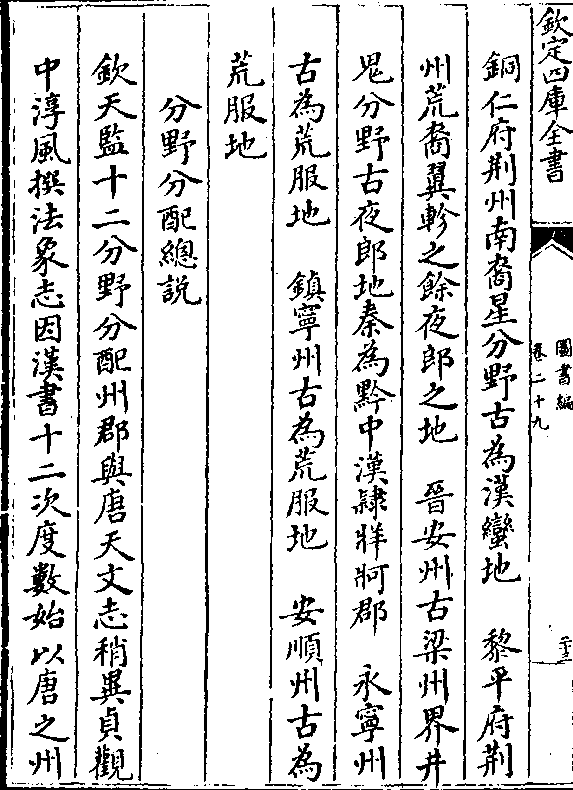 欽定四庫全書
圖書編
卷二十九
二十三
銅仁府荆州南裔星分野古為漢蠻地　黎平府荆
州荒裔翼軫之餘夜郎之地　晉安州古梁州界井
鬼分野古夜郎地秦為黔中漢隸牂牁郡　永寧州
古為荒服地　鎮寧州古為荒服地　安順州古為
荒服地
分野分配總説
欽天監十二分野分配州郡與唐天文志稍異貞觀
中淳風撰法象志因漢書十二次度數始以唐之州